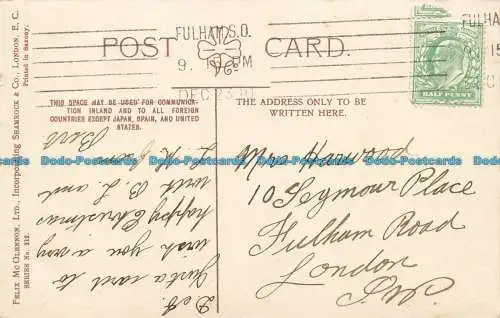 POST CARD.
FULHAM.S.O.
9. PM
DEC 23
FULHAM
15
HALF PENNY
THIS SPACE MAY BE USED FOR COMMUNICA-
TION INLAND AND TO ALL FOREIGN
COUNTRIES EXCEPT JAPAN, SPAIN, AND UNITED
STATES.
THE ADDRESS ONLY TO BE
WRITTEN HERE.
FELIX MCGLENNON, LTD., Incorporating SHAMROCK & CO., LONDON, E. C.
Printed in Saxony.
SERIES No. 212.
Just a card to
wish you a very
happy Christmas
with B L and
L K from
Bert
Mrs Harwood
10 Seymour Place
Fulham Road
London
S.W.
Dodo-Postcards Dodo-Postcards Dodo-Postcards Dodo-Postcards Dodo-Postcards Dodo-Postcards
Dodo-Postcards Dodo-Postcards Dodo-Postcards Dodo-Postcards Dodo-Postcards Dodo-Postcards